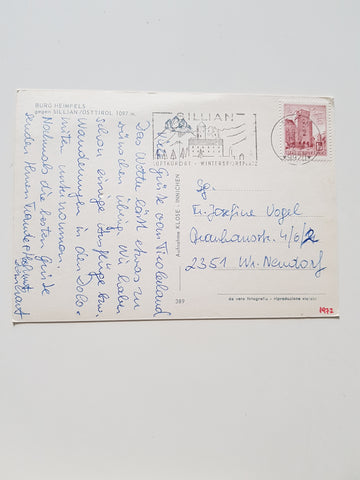 BURG HEIMFELS
gegen SILLIAN/OSTTIROL 1097 m.
Viele Grüße vom Tirolerland
Das Wetter läßt etwas zu
wünschen übrig. Wir haben
schon einige Ausflüge bzw.
Wanderungen in den Dolo-
miten unternommen.
Nochmals die besten Grüße
senden Ihnen
SILLIAN
LUFTKURORT - WINTERSPORTPLATZ
Aufnahme KLOSE - INNICHEN
Fr. Josefine Vogel
4/6/2
2351 Wr. Neudorf
389
da vera fotografia - riproduzione vietata
1972